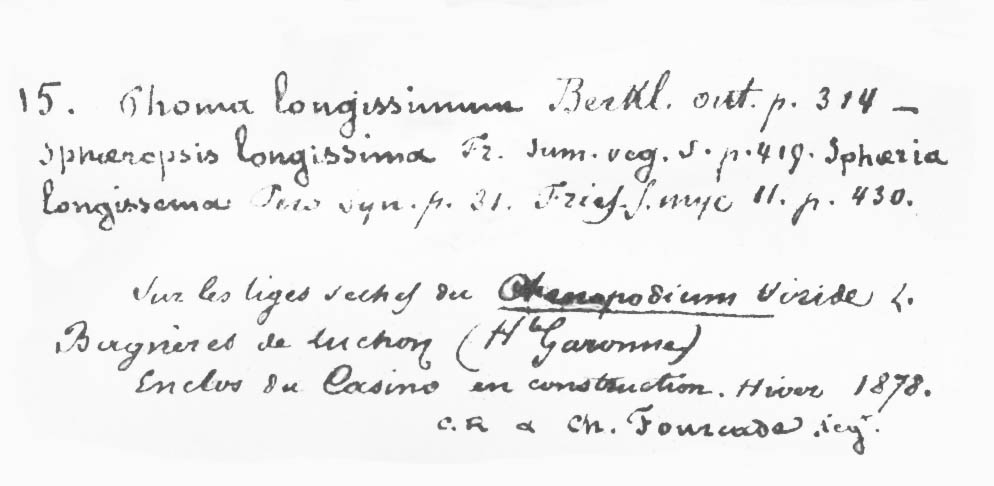 15. Phoma longissimum Berkl. out. p. 314 –
Sphæropsis longissima Fr. Sum. veg. S. p. 419. Sphæria
longissema Pers syn. p. 31. Fries. S. myc 11. p. 430.
Sur les tiges seches du Chenopodium viride L.
Bagnères de Luchon (Hte Garonne)
Enclos du Casino en construction. Hiver 1878.
C. R & Ch. Fourcade